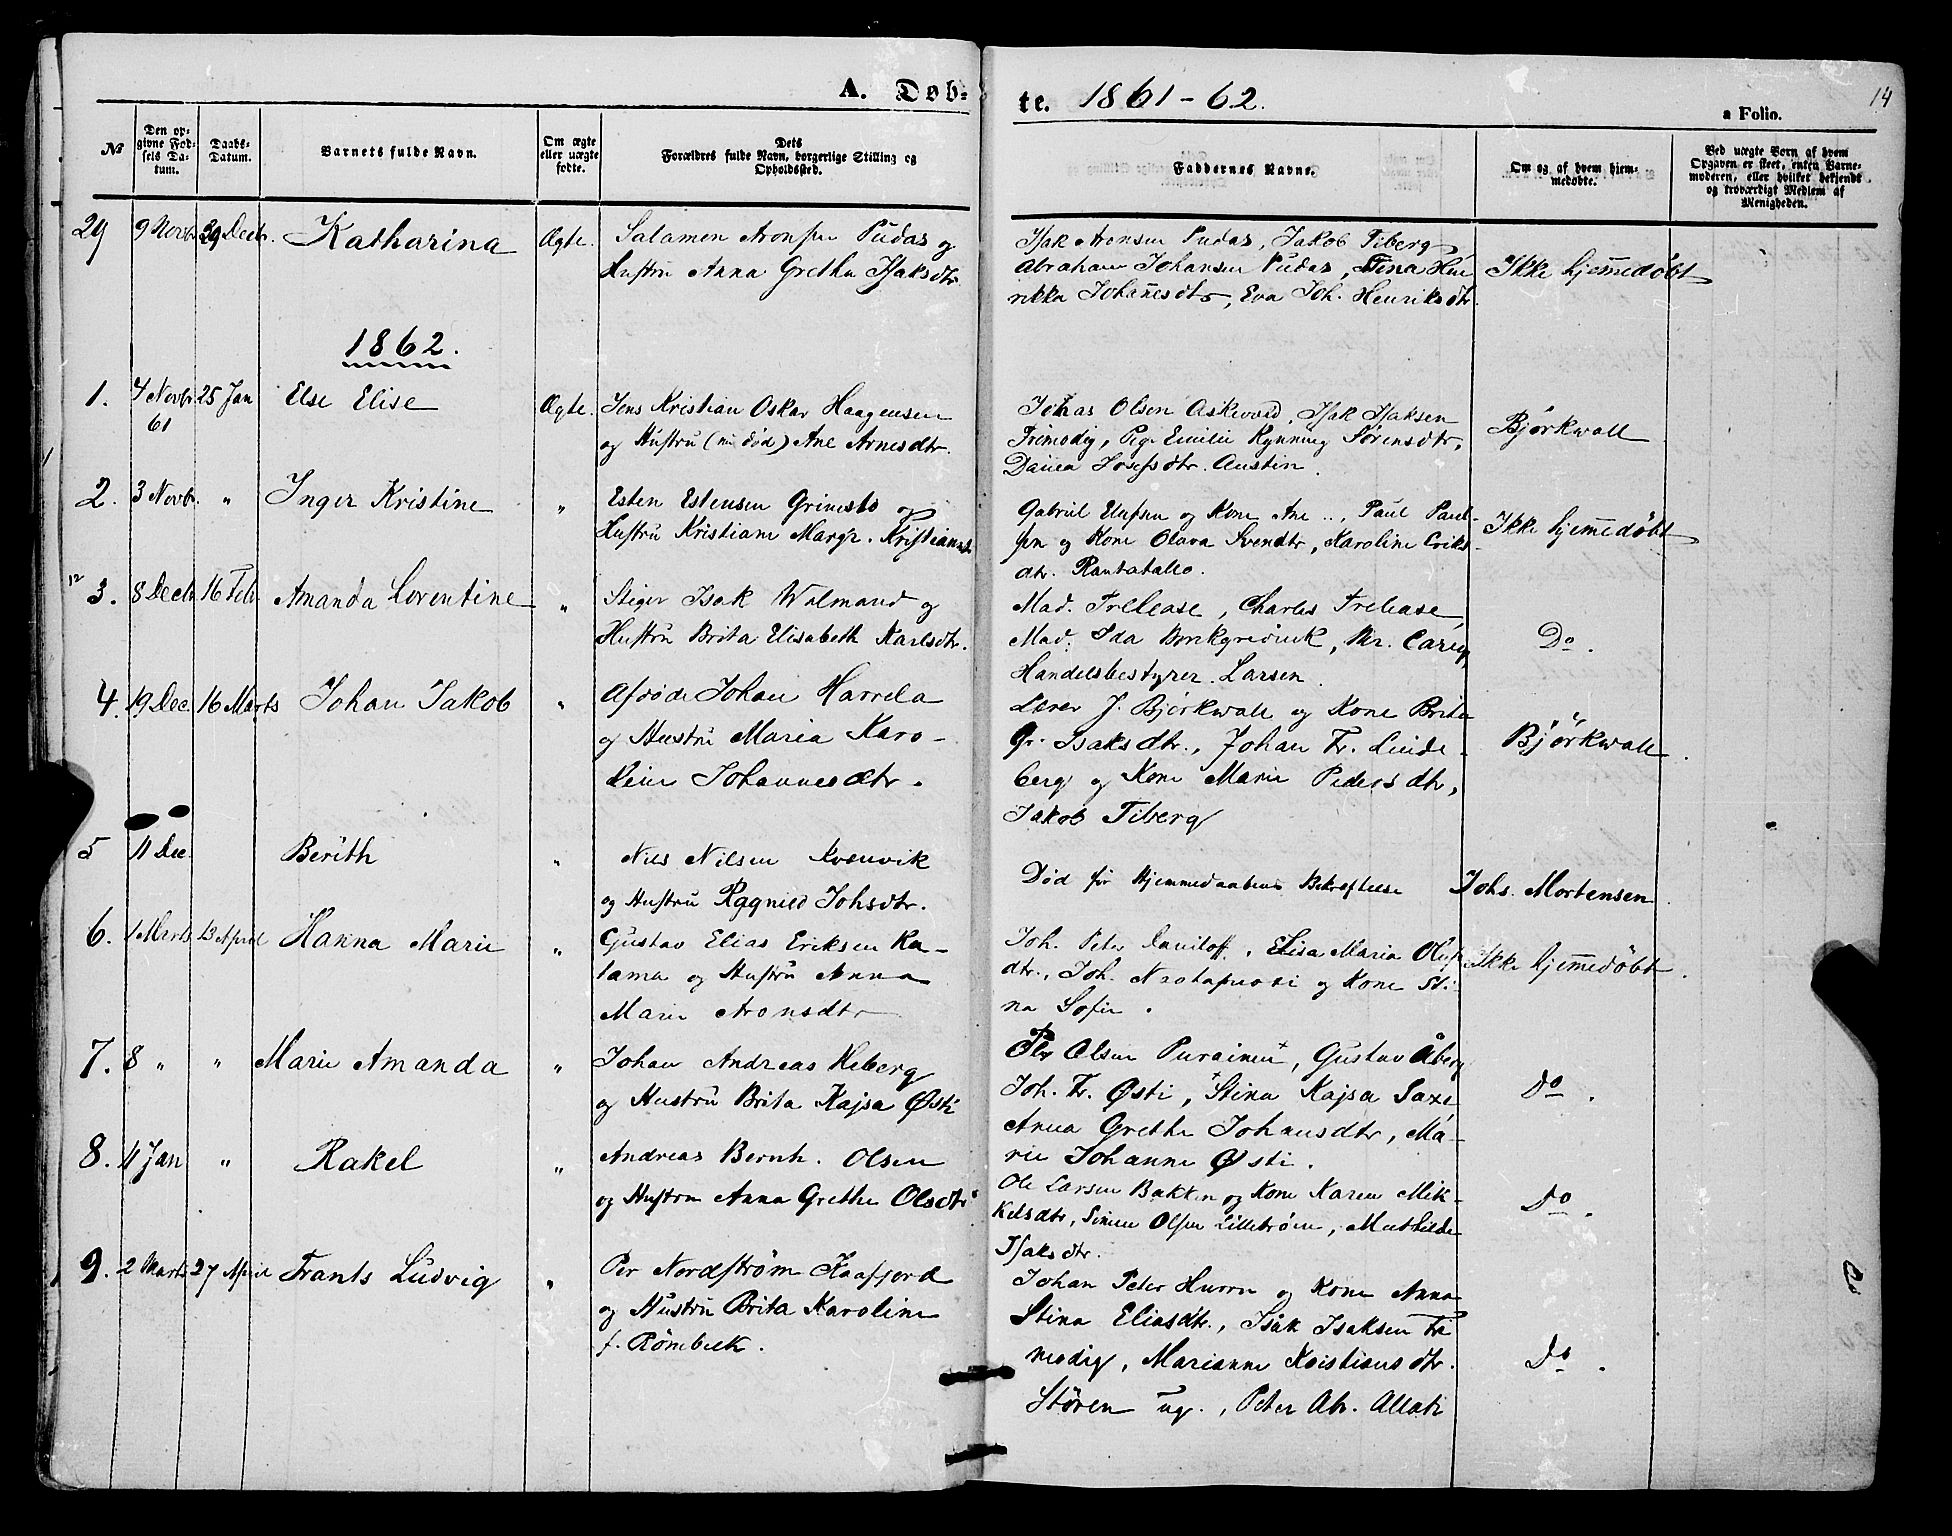 A. Døb-
te. 1861-62.
14
a Folio.
№
Den op-
givne Fød-
sels Da-
tum.
Daabs-
Datum.
Barnets fulde Navn.
Om ægte
eller uægte
fødte.
Dets
Forældres fulde Navn, borgerlige Stilling og
Opholdssted.
Faddernes Navne.
Om og af hvem hjem-
medøbte.
Ved uægte Børn af hvem
Opgaven er skeet, enten Barne-
moderen, eller hvilket bekjendt
og troværdigt Medlem af
Menigheden.
29 9 Novbr 29 Decbr. Katharina Ægte.
Salamon Aronsen Pudas og
Hustru Anna Grethe Isaksdtr
Isak Aronsen Pudas, Jakob Tiberg
Abraham Johansen Pudas, Stina Hen
rikka Johannesdtr, Eva Joh. Henriksdtr.
Ikke hjemmedøbt
1862.
1. 4 Novbr 61 25 Jan Else Elise Ægte.
Jens Kristian Oskar Haagensen
og Hustru (nu død) Ane Arnesdtr.
Johas Olsen Askevold, Isak Isaksen
Frimodig, Pige Emilie Kynning Sørensdtr,
Josefsdtr. Austin.
Bjørkwall
2. 3 Novbr. " Inger Kristine "
Esten Estensen Grimsbo og
Hustru Kristiane Margr. Kristiansd.
Gabriel Elufsen og Kone Ane .., Paul Paul-
sen og Kone Olava Svendtr, Karoline Eriks-
dtr. Rantatallo.
Ikke hjemmedøbt
12 3. 8 Decb 16 Feb Amanda Lorentine "
Stiger Isak Walmand og
Hustru Brita Elisabeth Karlsdtr.
Mad. Trelease, Charles Trelease,
Mad. Ida Borkgrevink, Mr. Carey
Handelsbestyrer Larsen.
Do.
4. 19 Dec. 16 Marts Johan Jakob "
Afdøde Johan Harrela
og Hustru Maria Karo-
line Johannesdtr.
Lærer J. Bjørkwall og Kone Brita
Gr. Isaksdtr., Johan Fr. Linde-
berg og Kone Marie Pedersdtr,
Jakob Tiberg
Björkwall.
5 11 Dec. Berith "
Nils Nilsen Kvenvik
og Hustru Ragnild Johsdtr.
Død før Hjemmedaabens Bekræftelse
Johs. Mortensen.
6. 1 Marts 13 April Hanna Marie "
Gustav Elias Eriksen Ka-
lama og Hustru Anna
Marie Aronsdtr
Joh. Peter Daniloff, Elisa Maria Olufs
dtr., Joh. og Kone Sti-
na Sofie.
Ikke hjemmedøbt.
7. 8 " " Marie Amanda "
Johan Andreas Heberg
og Hustru Brita Kajsa Østi
Per Olsen Purainen, Gustav Åberg
Joh. Fr. Østi, Stina Kajsa Saxe
Anna Grethe Johansdtr, Ma-
rie Johanne Østi.
Do.
8. 11 Jan " Rakel "
Andreas Bernh. Olsen
og Hustru Anna Grethe Olsdtr
Ole Larsen Bakken og Kone Karen Mik-
kelsdtr, Simen Olsen Lillestrøm, Mathilde
Isaksdtr.
Do.
9. 2 Marts 27 April Frants Ludvig "
Per Nordstrøm Kaafjord
og Hustru Brita Karoline
f. Rømbeck.
Johan Peter Hurru og Kone Anna
Stina Eliasdtr., Isak Isaksen Fri
modig, Marianne Kristiansdtr.
Støren ug., Peter Abr. Allati
Do.